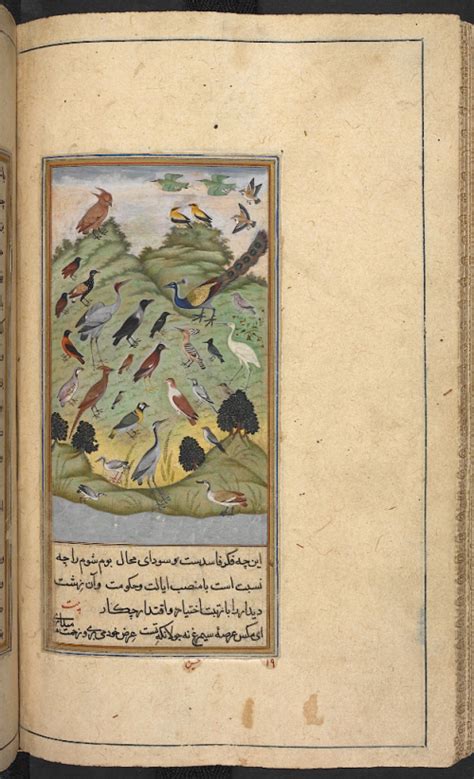 این چه فکر فاسدست و سودای محال بوم شوم را چه
نسبت است با منصب ایالت و حکومت و آن زشت
دیدار را با رتبت اختیار و اقتدار چکار
ای مکس عرصهٔ سیمرغ نه جولانکه تست عرض خود می بری و زحمت ما
حسین
۱۹